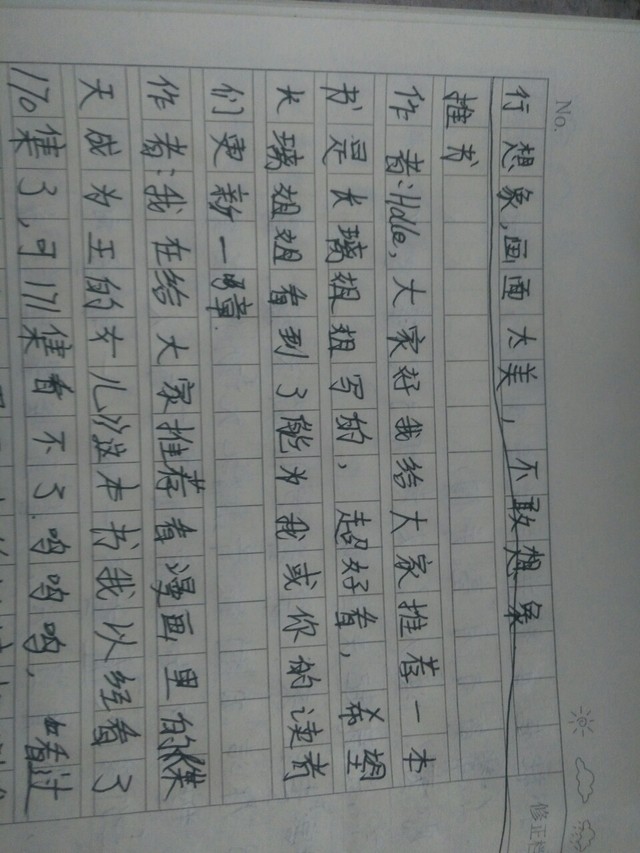 No.
行想象,画面太美,不敢想象
推书
作者:Hdle,大家好我给大家推荐一本
书是大璃姐姐写的,超好看,希望
大璃姐姐看到了能为我或你的读者
们更新一章.
作者:我在给大家推荐看漫画里的《某
天成为王的女儿》这本书我以经看了
170集了,可171集看不了.呜呜呜,看过
修正